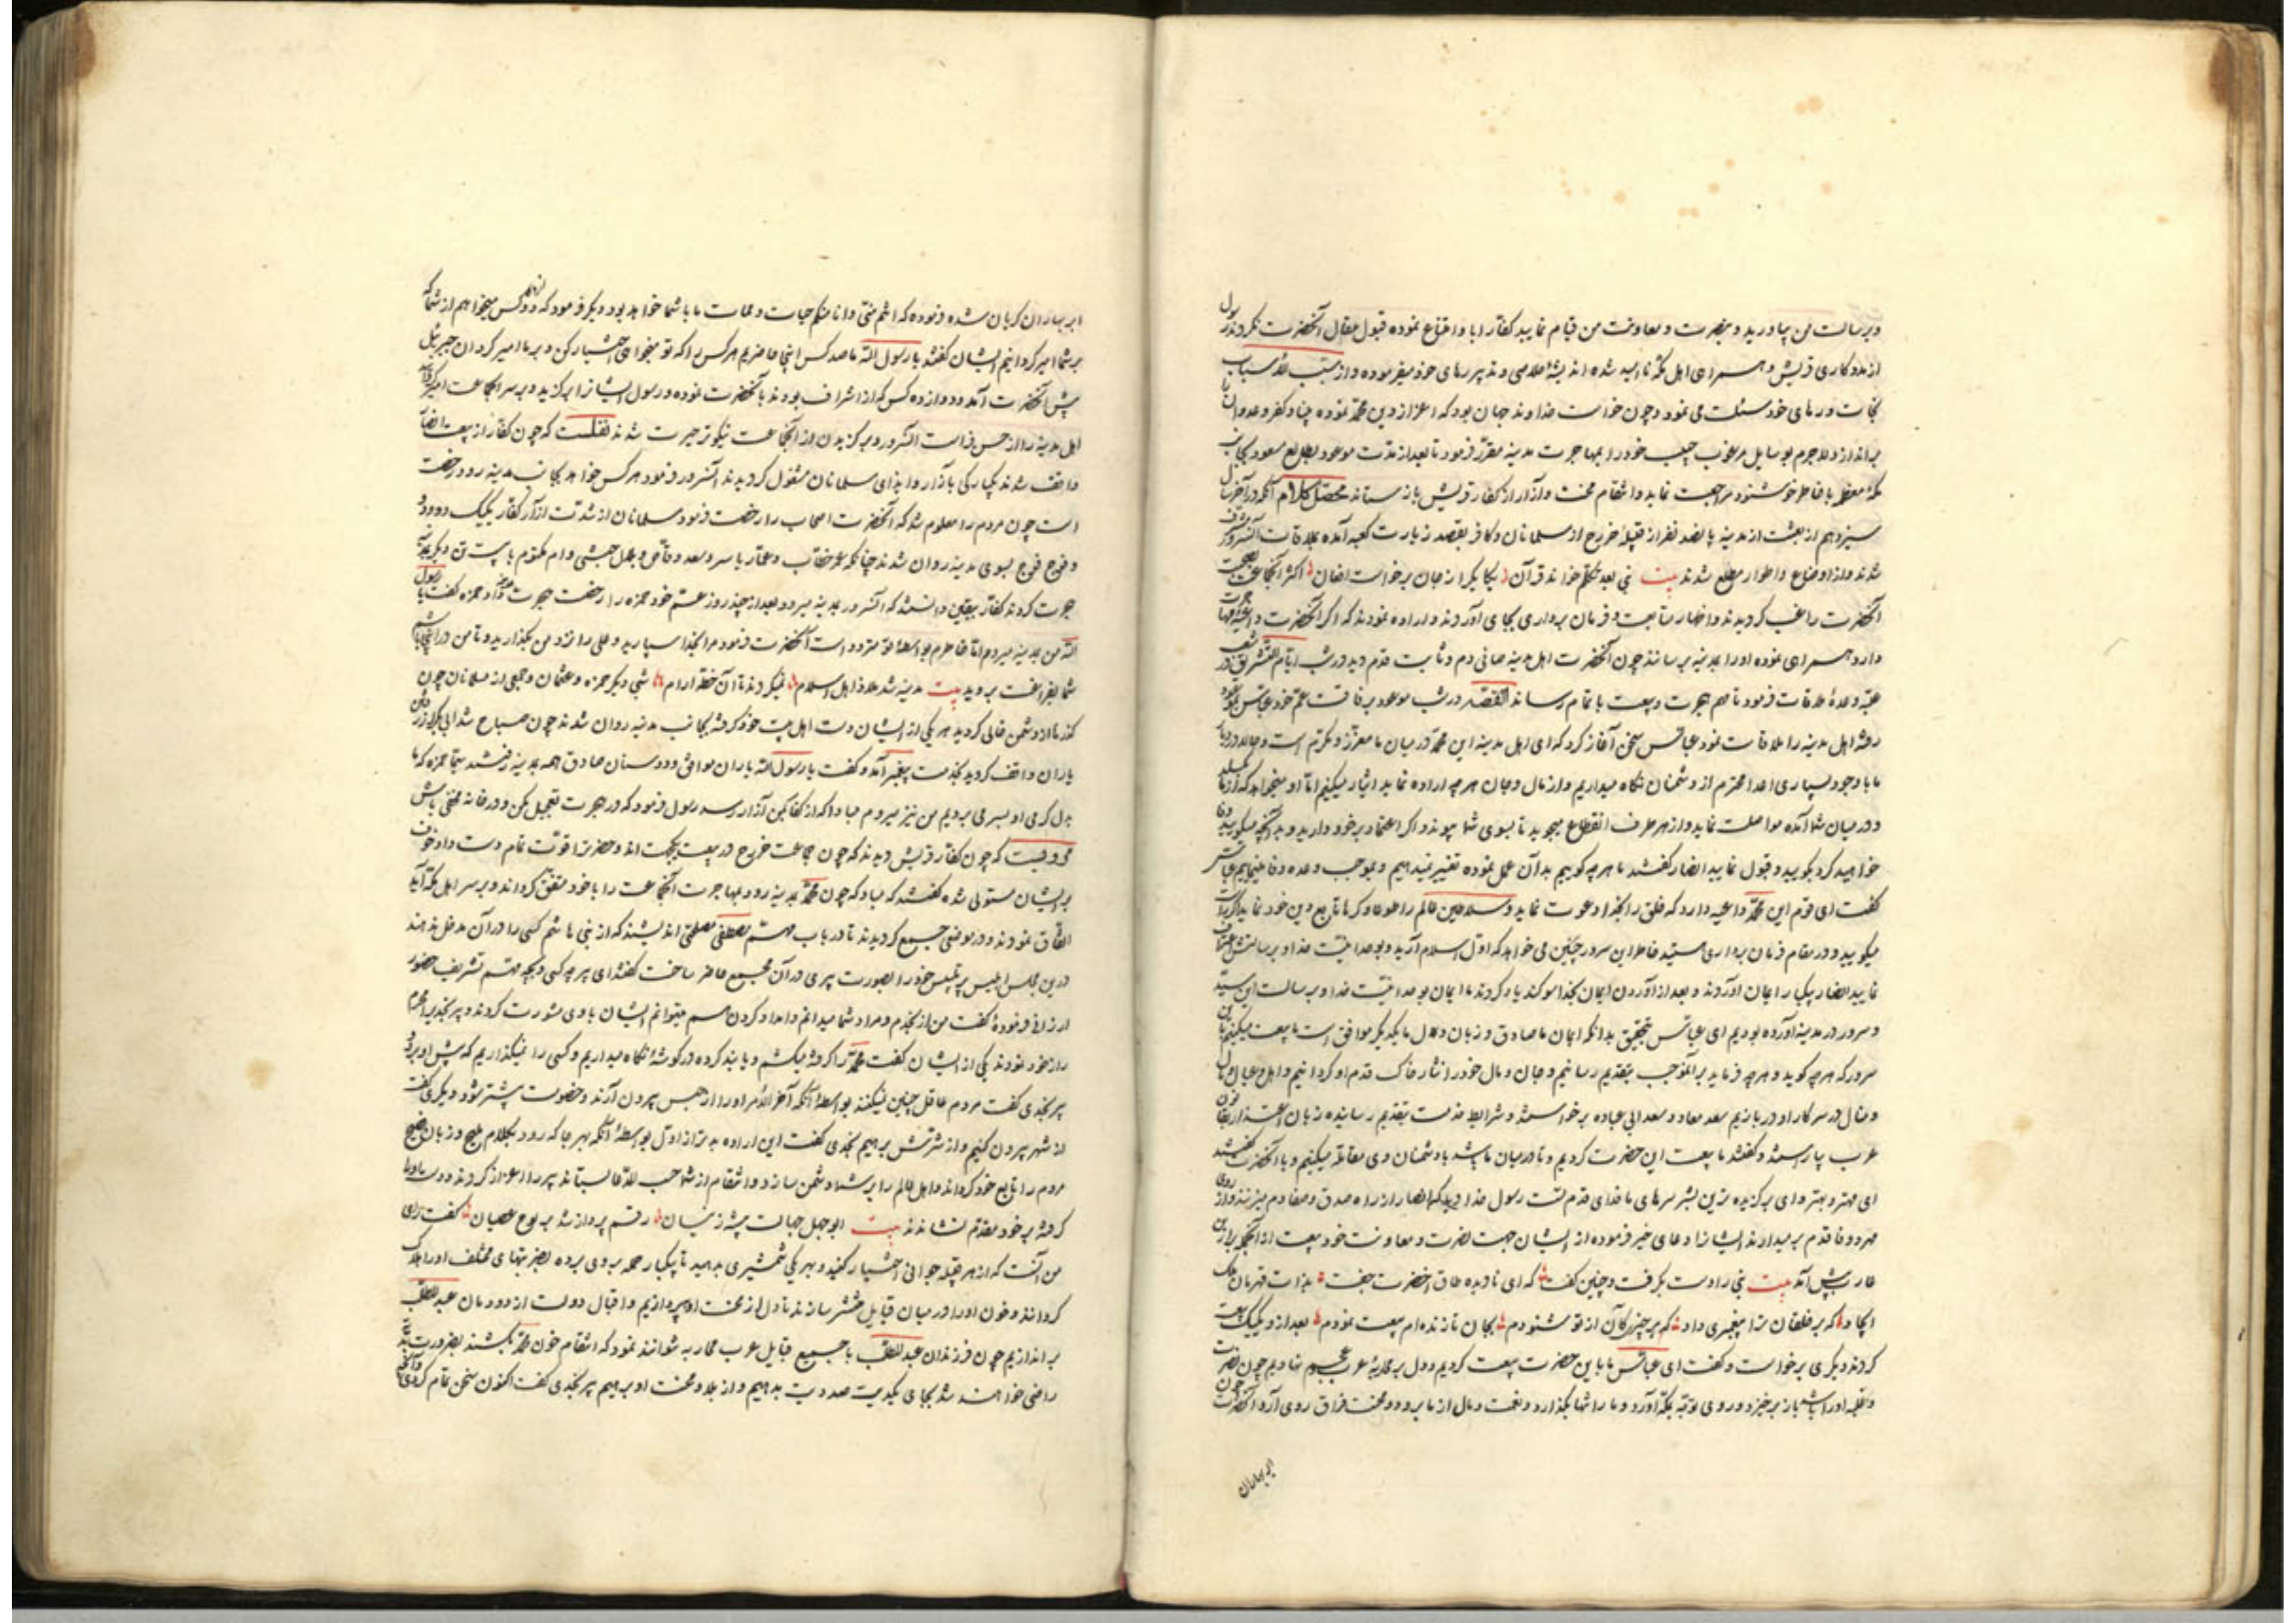 وبرسالت من بیاورید وبنصرت و معاونت من قیام نمایید کفار ابا وامتناع نموده قبول مقال آنحضرت نکردند رسول
از مددکاری قریش و همراهی اهل مکه ناامید شده اندیشهٔ خلاصی
نجات ورهای خود مسئلت می نمود وچون خواست خداوند جهان بود که اعزاز دین محمد نموده
براندازد ولاجرم حبیب خود را بمهاجرت مدینه مقرر فرمود تا بعد از مدت موعود
مکهٔ معظمه با خاطر خوشنود مراجعت نماید وانتقام محنت وآزار از کفار قریش باز ستاند محصل کلام آنکه در آخر سال
سیزدهم از بعثت از مدینه پانصد نفر از قبیلهٔ خزرج از مسلمانان وکافر بقصد زیارت کعبه آمده بملاقات آنسرور مشرف
شدند واز اوضاع واطوار مطلع شدند بیت نبی بعد تکلم خواند قرآن یکایک از جان برخواست افغان اکثر آنجماعت بصحبت
آنحضرت راغب کردیدند واظهار متابعت وفرمان برداری بجای آوردند واراده نمودند که اکر آنحضرت
همراهی نموده اورا بمدینه برسانند چون آنحضرت اهل مدینه صافی دم وثابت قدم دید در شب ایام التشریق در شعب
عقبه وعدهٔ ملاقات فرمود تا مهم هجرت وبیعت باتمام رساند القصه در شب موعود برفاقت عم خود عباس
رفته اهل مدینه را ملاقات نمود عباس سخن آغاز کرد که ای اهل مدینه این محمد در میان ما معزز ومکرم است
ما با وجود بسیاری اعدا محترم از دشمنان نکاه میداریم واز مال وجان هرچه اراده نماید ایثار میکنیم اما او میخواهد که از ما
ودر میان شما آمده مواصلت نماید واز هر طرف انقطاع میجوید تا بسوی شما پیوندد اکر اعتماد بر خود دارید
خواهید کرد بکویید وقبول نمایید انصار کفتند ما هرچه کوییم بدان عمل نموده تغییر نمیدهیم وبموجب وعده وفا مینماییم عباس
کفت ای قوم این محمد داعیه دارد که خلق را بخدا دعوت نماید وسلاطین عالم را طوعا وکرها تابع دین خود نماید
میکویید ودر مقام فرمان برداری هستید خاطر این سرور چنین می خواهد که اول اسلام آرید وبوحدانیت خدا وبرسالتش اعتراف
نمایید انصار بیکبار ایمان آوردند وبعد از آوردن ایمان بخدا سوکند یاد کردند ما ایمان بوحدانیت خدا وبرسالت این سید
وسرور در مدینه آورده بودیم ای عباس بتحقیق بدانکه ایمان ما صادق وزبان ودل ما یکدیکر موافق است ما بیعت میکنیم
سرور که هرچه کوید وهرچه فرماید برآنموجب بتقدیم رسانیم وجان ومال خود را نثار خاک قدم او کردانیم واهل وعیال
ومنال در سر کار او دربازیم سعد معاذ وسعد ابی عباده برخواستند وشرایط خدمت بتقدیم رسانیده زبان
عرب بیاراستند وکفتند ما بیعت این حضرت کردیم وتا در میان ما باشد با دشمنان وی مقاتله میکنیم وبا آنحضرت کفتند
ای مهتر وبهتر وای برکزیده ترین بشر سرهای ما فدای قدم تست رسول خدا
قدم برمیدارند ایشانرا دعای خیر فرموده از ایشان جهت نصرت ومعاونت خود بیعت
پیش آمد بیت نبی را دست بکرفت وچنین کفت که ای نادیده طاق اخضرت جفت بذات قهرمان ملک
ایجاد که بر خلقان ترا پیغمبری داد که هر چیز کان از تو شنودم بجان تا زنده ام بیعت نمودم بعد از او یکیک بیعت
کردند دیکری برخواست وکفت ای عباس ما با این حضرت بیعت کردیم ودل بر محاربهٔ عرب وعجم نهادیم چون نصرت
روی توجه بمکه آورد وما را تنها بکذارد ونعمت ومال از ما برود ومحنت فراق روی آرد آنحضرت چون
ابر بهاران
ابر بهاران کریان شده فرموده که انتم منی وانا منکم حیات وممات ما با شما خواهد بود دیکر فرمود که دوازده کس میخواهم از شما که
بر شما امیر کردانیم ایشان کفتند یا رسول الله ما صد کس اینجا حاضریم هرکس را که تو میخواهی اختیار کن وبر ما امیر کردان جبرئیل
پیش آنحضرت آمد ودوازده کس که از اشراف بودند بآنحضرت نموده ورسول ایشانرا برکزید وبر سر آنجماعت امیر کردانید
اهل مدینه را از حسن فراست آنسرور وبرکزیدن از آنجماعت نیکوتر حیرت شدند نقلست که چون کفار از بیعت انصار
واقف شدند یکبارکی بآزار وایذای مسلمانان مشغول کردیدند آنسرور فرمود هرکس خواهد بجانب مدینه رود رخصت
است چون مردم را معلوم شد که آنحضرت اصحاب را رخصت فرمود مسلمانان از شدت آزار کفار یکیک ودو دو
وفوج فوج بسوی مدینه روان شدند چنانکه عمر خطاب وعمار یاسر وسعد وقاص وبلال حبشی وام مکتوم با بیست تن دیکر بمدینه
هجرت کردند کفار بیقین دانستند که آنسرور بمدینه میرود بعد از چند روز عم خود حمزه را رخصت هجرت داد وحمزه کفت یا رسول
الله من بمدینه میروم اما خاطرم بواسطهٔ تو متردد است آنحضرت فرمود مرا بخدا سپارید وعلی را نزد من بکذارید وتا من در اینجا باشم
شما بفراغت بروید بیت مدینه شد ملاذ اهل اسلام نمیکردند تا آن خطه آرام شبی دیکر حمزه وعثمان وجمعی از مسلمانان چون
از دشمن خالی کردید هر یکی از ایشان دست اهل بیت خود کرفته بجانب مدینه روان شدند چون صباح شد ابی بکر
یاران واقف کردید بخدمت پیغمبر آمد وکفت یا رسول الله یاران موافق ودوستان صادق همه بمدینه رفتند
می بردیم من نیز میروم مبادا که از کفار بمن آزار رسد رسول فرمود که در هجرت تعجیل مکن ودر خانه مخفی باش
مرویست که چون کفار قریش دیدند که چون جماعت خزرج در بیعت یکجهت اند وحضرت را قوت تمام دست داد خوف
بر ایشان مستولی شده کفتند که مبادا که چون محمد بمدینه رود مهاجرت آنجماعت را با خود متفق کرداند وبر سر اهل مکه آید
اتفاق نمودند ودر موضعی جمیع کردیدند تا در باب مهم مصطفی مصلحتی اندیشند که از بنی هاشم کسی را در آن مدخل ندهند
درین مجلس ابلیس پر تلبیس خود را بصورت پیری در آن مجمع حاضر ساخت کفتند ای پیر چه کسی وبچه مهم تشریف حضور
ارزانی فرمودهٔ کفت من از نجدم ومراد شما میدانم وامداد کردن مهم میتوانم ایشان با وی مشورت کردند وپیر نجدی را محرم
راز خود نمودند یکی از ایشان کفت محمد را کرفته میکشم ویا بند کرده در کوشهٔ نکاه میداریم وکسی را نمیکذاریم که پیش او برود
پیر نجدی کفت مردم عاقل چنین نمیکنند بواسطهٔ آنکه آخر الامر اورا از حبس بیرون آرند وخصومت بیشتر شود دیکری کفت
از شهر بیرون کنیم واز شرتش برهیم نجدی کفت این اراده بدتر از اول بواسطهٔ آنکه بهر جا که رود بکلام ملیح وزبان فصیح
مردم را تابع خود کرداند واهل عالم را بر شما دشمن سازد وانتقام از شما بستاند پیر را اعزاز کردند ودست
کرفته بر خود مقدم نشاندند بیت ابوجهل جهالت پیشه زیشان رقم پرداز شد بر لوح عصیان کفت رای
من آنست که از هر قبیله جوانی اختیار کنید وبهر یکی شمشیری بدهید تا بیکبار حمله بر وی برده بضربتهای مختلف اورا هلاک
کردانند وخون اورا در میان قبایل منتشر سازند تا دل از محنت او پردازیم واقبال دولت از دودمان عبدالمطلب
براندازیم چون فرزندان عبدالمطلب با جمیع قبایل عرب محاربه نتوانند نمود که انتقام خون محمد بکشند بضرورت بدیه
راضی خواهند شد بجای یک دیت صد دیت بدهیم واز بلا ومحنت او برهیم پیر نجدی کفت اکنون سخن تمام کردی